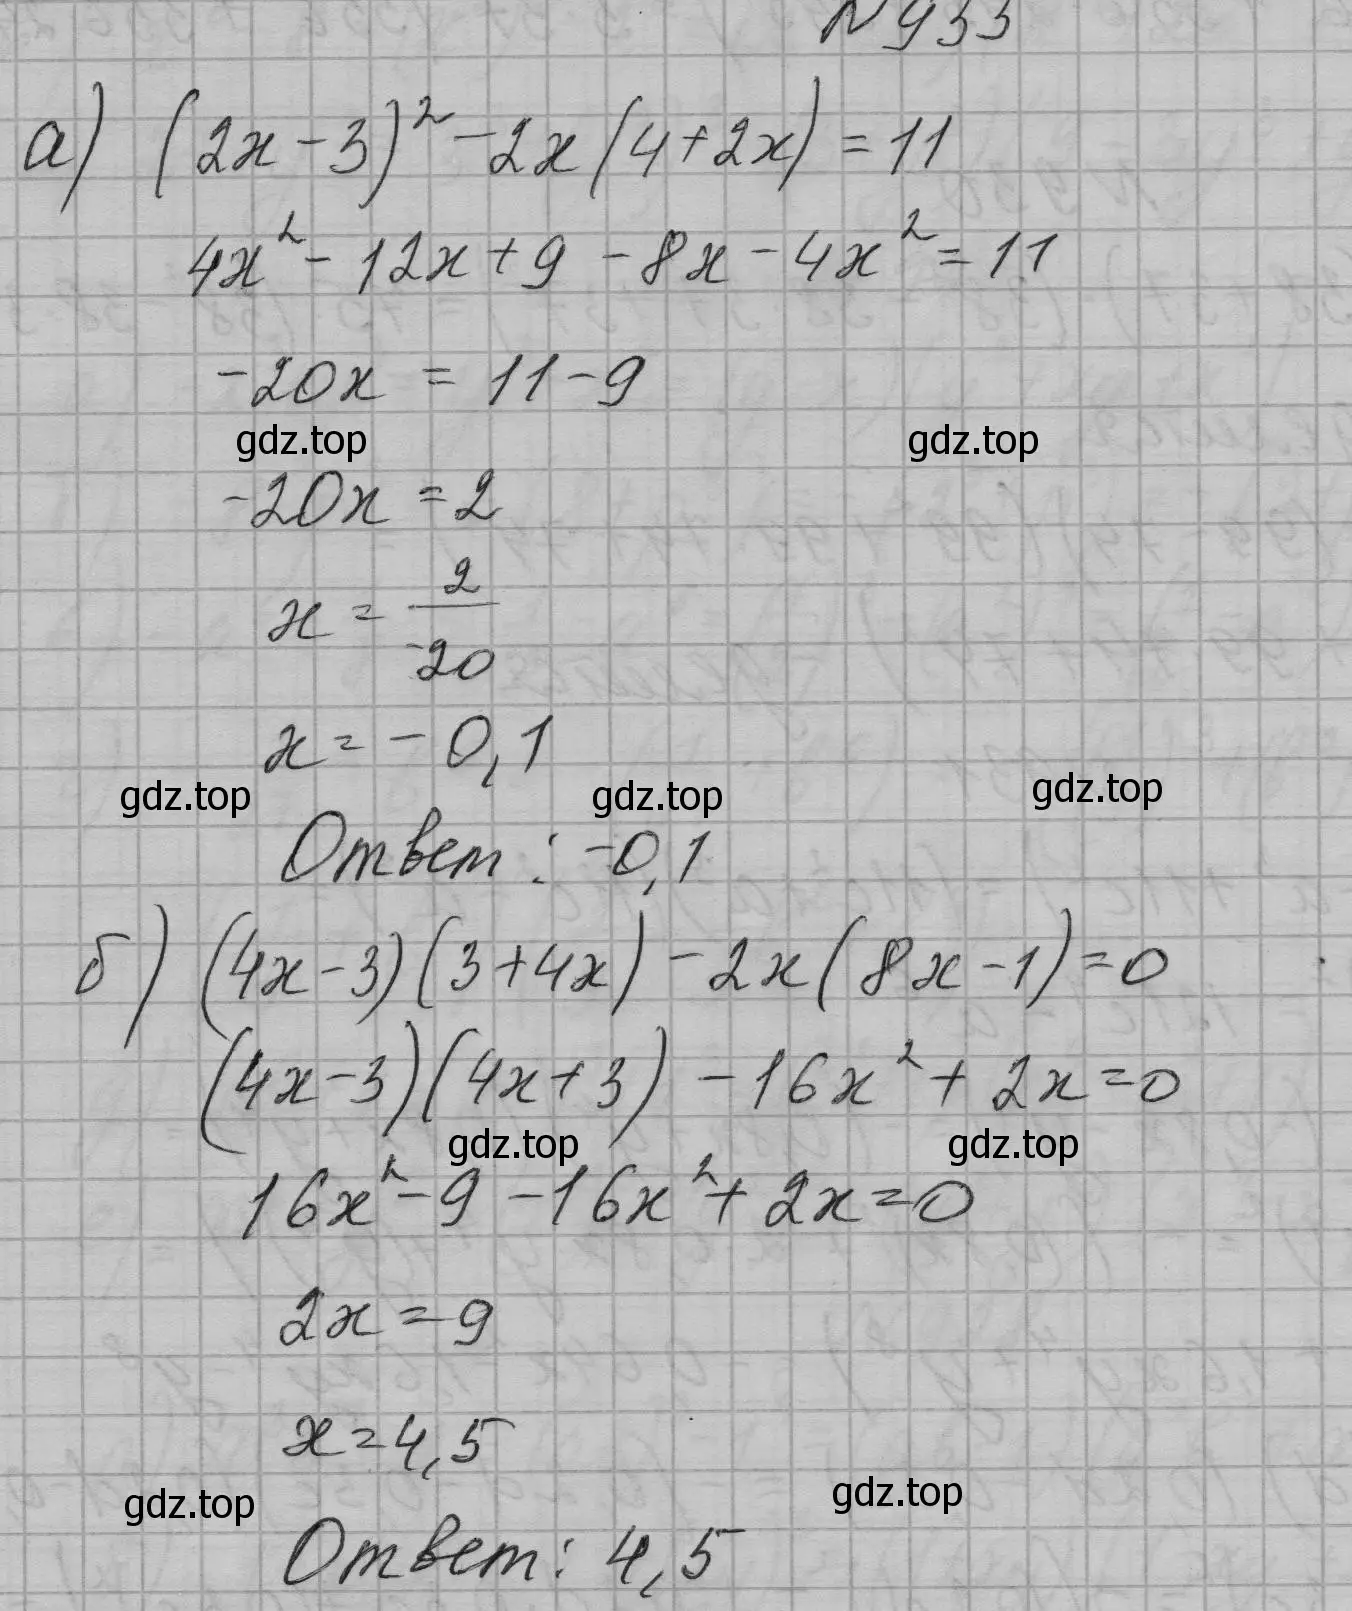 N 933
а) (2x - 3)² - 2x(4 + 2x) = 11
4x² - 12x + 9 - 8x - 4x² = 11
-20x = 11 - 9
gdz.top gdz.top
-20x = 2
x = 2/-20
x = - 0,1
gdz.top gdz.top gdz.top
Ответ: -0,1
б) (4x - 3)(3 + 4x) - 2x(8x - 1) = 0
(4x - 3)(4x + 3) - 16x² + 2x = 0
gdz.top gdz.top
16x² - 9 - 16x² + 2x = 0
2x = 9
x = 4,5
gdz.top gdz.top
Ответ: 4,5